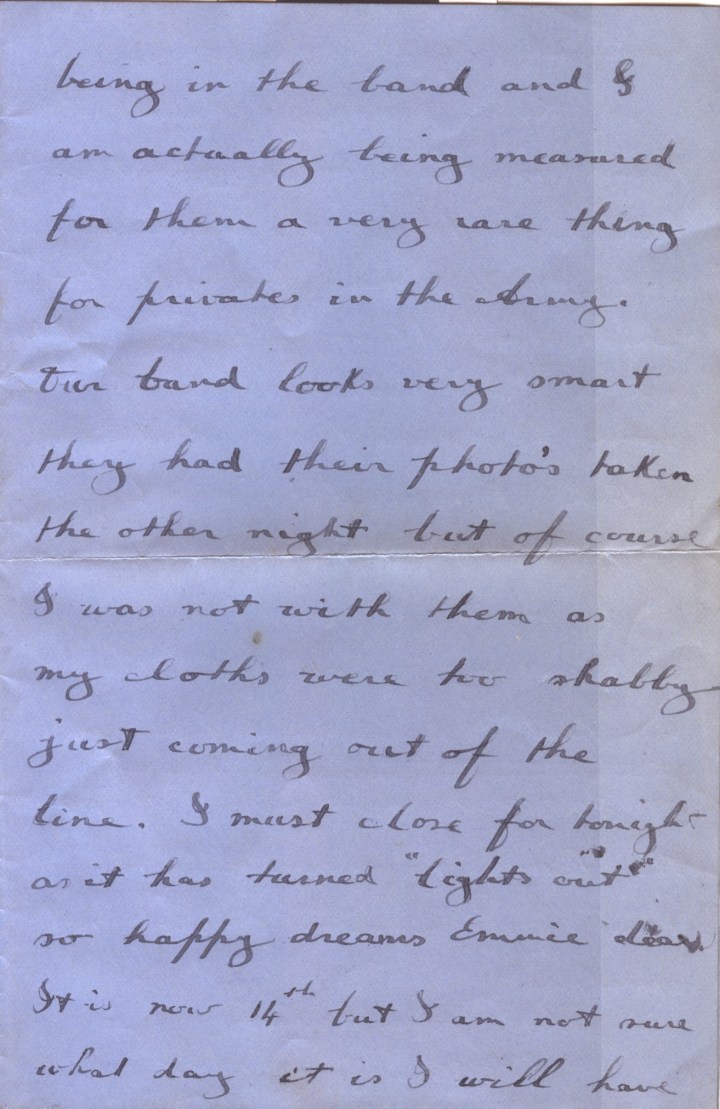 being in the band and I
am actually being measured
for them a very rare thing
for privates in the Army.
Our band looks very smart
they had their photo's taken
the other night but of course
I was not with them as
my cloths were too shabby
just coming out of the
line. I must close for tonight
as it has turned "lights out"
so happy dreams Emmie dear.
It is now 14th but I am not sure
what day it is I will have